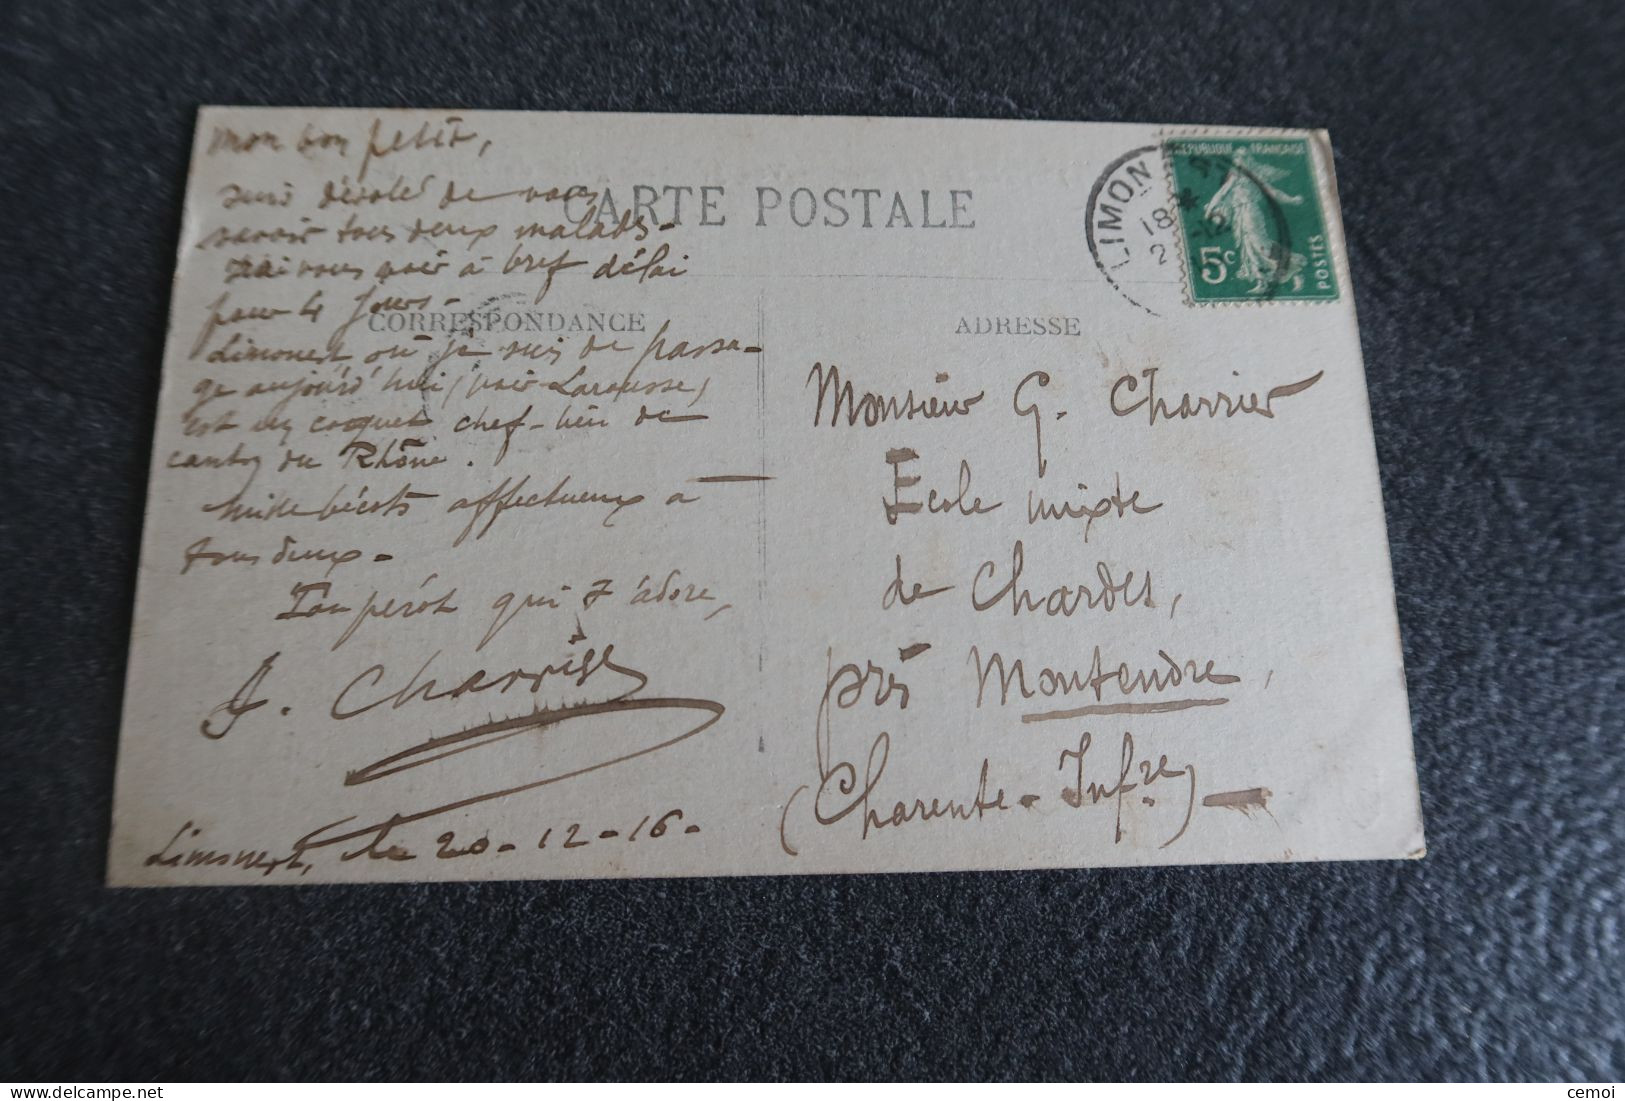 mon bon petit,
suis désolé de vous
savoir tous deux malades -
irai vous voir à bref délai
pour 4 jours -
Limonest où je suis de passa-
ge aujourd'hui, (voir Larousse)
est un coquet chef-lieu de
canton du Rhône.
mille bécots affectueux à
tous deux -
Ton pérot qui t'adore,
J. Charrier
Limonest, le 20-12-16-
CARTE POSTALE
CORRESPONDANCE
ADRESSE
Monsieur G. Charrier
Ecole mixte
de Chardes,
près Montendre,
(Charente-Infre)
LIMON
18
2 -12
RÉPUBLIQUE FRANÇAISE
5c
POSTES
cemoi